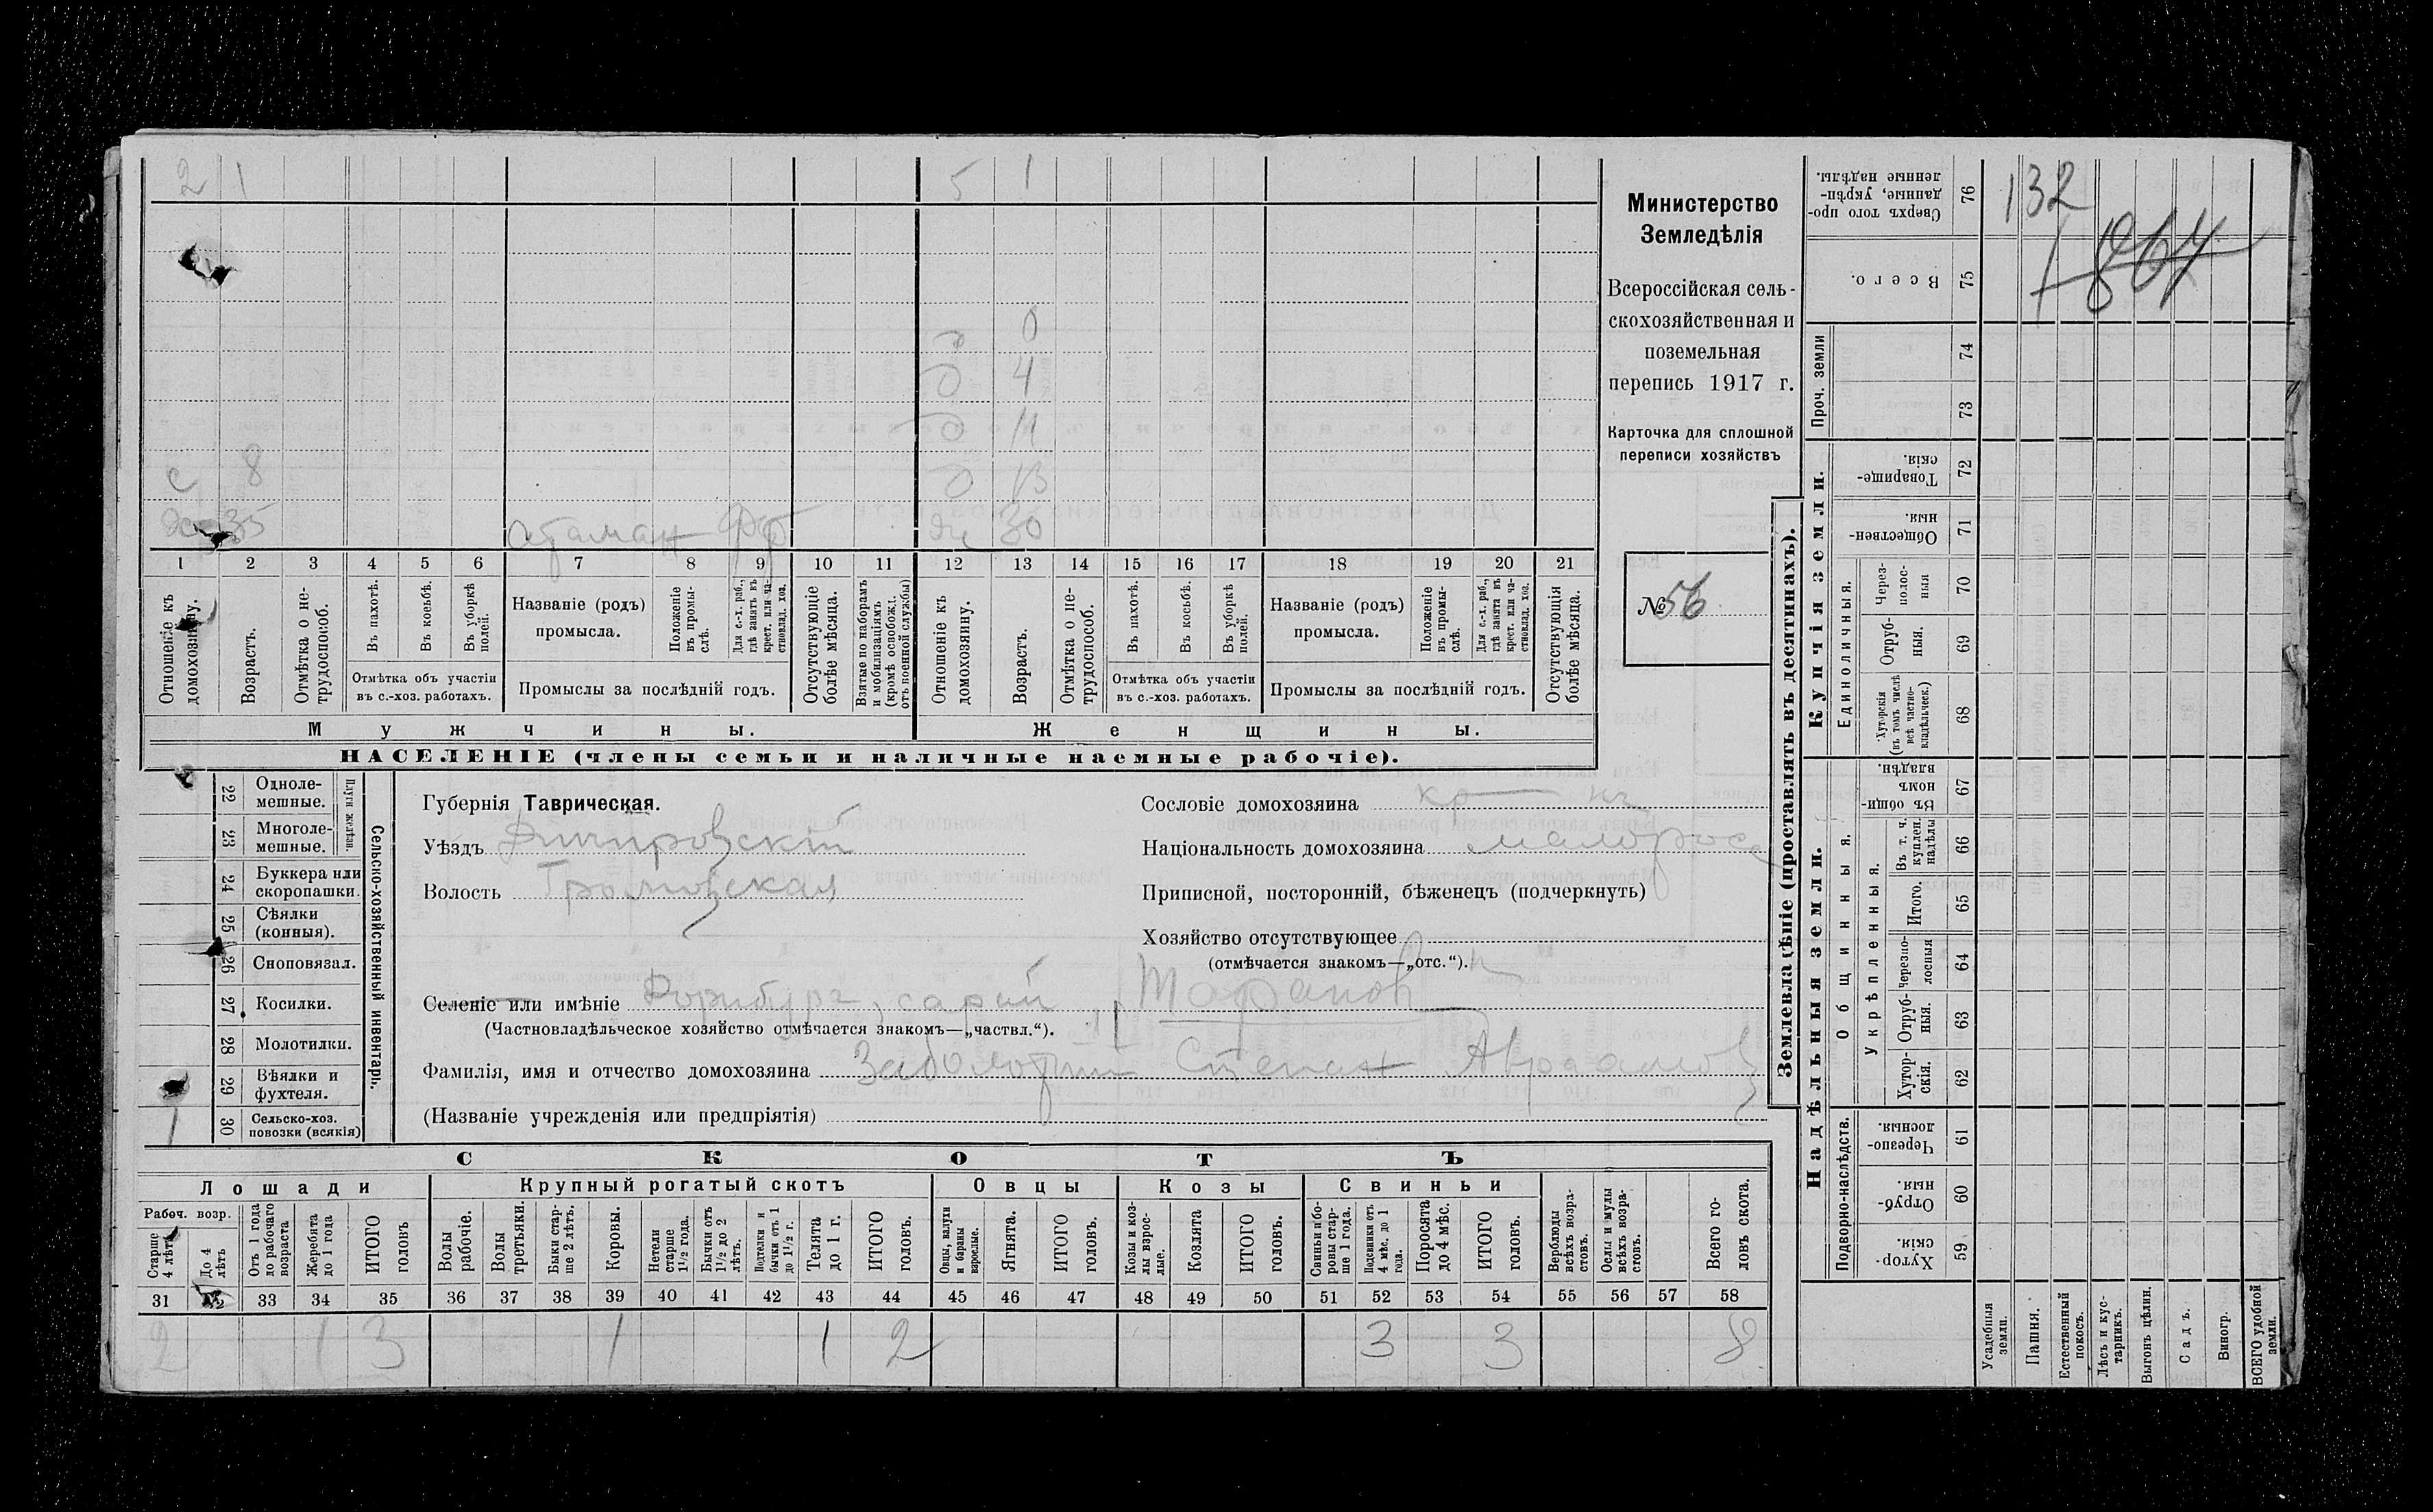 2 1 5 1
0
д 4
д 11
с 8 д 13
дх 35 атаман 30
1 2 3 4 5 6 7 8 9 10 11 12 13 14 15 16 17 18 19 20 21
Отношеніе къ домохозяину.
Возрастъ.
Отмѣтка о не-трудоспособ.
Въ пахотѣ.
Въ косьбѣ.
Въ уборкѣ полей.
Отмѣтка объ участіи
въ с.-хоз. работахъ.
Названіе (родъ)
промысла.
Положеніе въ промы-слѣ.
Для с.-х. раб., гдѣ занятъ въ крест. или ча-стновлад. хоз.
Промыслы за послѣдній годъ.
Отсутствующіе болѣе мѣсяца.
Взятые по наборамъ и мобилизаціямъ (кромѣ освобожд. отъ военной службы)
Отношеніе къ домохозяину.
Возрастъ.
Отмѣтка о не-трудоспособ.
Въ пахотѣ.
Въ косьбѣ.
Въ уборкѣ полей.
Отмѣтка объ участіи
въ с.-хоз. работахъ.
Названіе (родъ)
промысла.
Положеніе въ промы-слѣ.
Для с.-х. раб., гдѣ занята въ крест. или ча-стновлад. хоз.
Промыслы за послѣдній годъ.
Отсутствующія болѣе мѣсяца.
Мужчины. Женщины.
НАСЕЛЕНІЕ (члены семьи и наличные наемные рабочіе).
Министерство
Земледѣлія
Всероссійская сель-
скохозяйственная и
поземельная
перепись 1917 г.
Карточка для сплошной
переписи хозяйствъ
№ 56
22 Одноле-мешные.
23 Многоле-мешные.
Плуги желѣзн.
24 Буккера или скоропашки.
25 Сѣялки (конныя).
26 Сноповязал.
27 Косилки.
28 Молотилки.
29 Вѣялки и фухтеля.
1 30 Сельско-хоз. повозки (всякія)
Сельско-хозяйственный инвентарь.
Губернія Таврическая.
Уѣздъ Днипровскій
Волость
Сословіе домохозяина кр
Національность домохозяина малорос
Приписной, посторонній, бѣженецъ (подчеркнуть)
Хозяйство отсутствующее
(отмѣчается знакомъ—„отс.“).
Селеніе или имѣніе Форнбург, сарай
(Частновладѣльческое хозяйство отмѣчается знакомъ—„частвл.“).
Фамилія, имя и отчество домохозяина Заболотній Степан Авраамов
(Названіе учрежденія или предпріятія)
СКОТЪ
Лошади Крупный рогатый скотъ Овцы Козы Свиньи
Рабоч. возр.
Старше 4 лѣтъ
До 4 лѣтъ
Отъ 1 года до рабочаго возраста
Жеребята до 1 года
ИТОГО головъ
Волы рабочіе.
Волы третьяки.
Быки стар-ше 2 лѣтъ.
Коровы.
Нетели старше 1½ года.
Бычки отъ 1½ до 2 лѣтъ.
Подтелки и бычки отъ 1 до 1½ г.
Телята до 1 г.
ИТОГО головъ.
Овцы, валухи и бараны взрослые.
Ягнята.
ИТОГО головъ.
Козы и коз-лы взрос-лые.
Козлята
ИТОГО головъ.
Свиньи и бо-ровы стар-ше 1 года.
Подсвинки отъ 4 мѣс. до 1 года.
Поросята до 4 мѣс.
ИТОГО головъ.
Верблюды всѣхъ возра-стовъ.
Ослы и мулы всѣхъ возра-стовъ.
Всего го-ловъ скота.
31 32 33 34 35 36 37 38 39 40 41 42 43 44 45 46 47 48 49 50 51 52 53 54 55 56 57 58
2 1 3 1 1 2 3 3 8
Землевладѣніе (проставлять въ десятинахъ).
Сверхъ того про-данные, укрѣп-ленные надѣлы. 76 132
Всего. 75
Проч. земли
74
73
Купчія земли.
Товарище-скія. 72
Обществен-ныя. 71
Единоличныя.
Через-полос-ныя 70
Отруб-ныя. 69
Хуторскія (въ томъ числѣ всѣ частно-владѣльческ.) 68
Надѣльныя земли.
Общинныя.
Въ общин-номъ владѣн. 67
Укрѣпленныя.
Въ т. ч. куплен. надѣлы 66
Итого. 65
Черезпо-лосныя 64
Отруб-ныя. 63
Хутор-скія. 62
Подворно-наслѣдств.
Черезпо-лосныя. 61
Отруб-ныя. 60
Хутор-скія. 59
Усадебныя земли.
Пашня.
Естественный покосъ.
Лѣсъ и кус-тарникъ.
Выгонъ цѣлин.
Садъ.
Виногр.
ВСЕГО удобной земли.